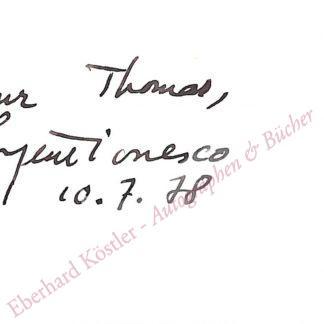 ur Thomas,
Eugène Ionesco
10.7.78
Eberhard Köstler - Autographen & Bücher